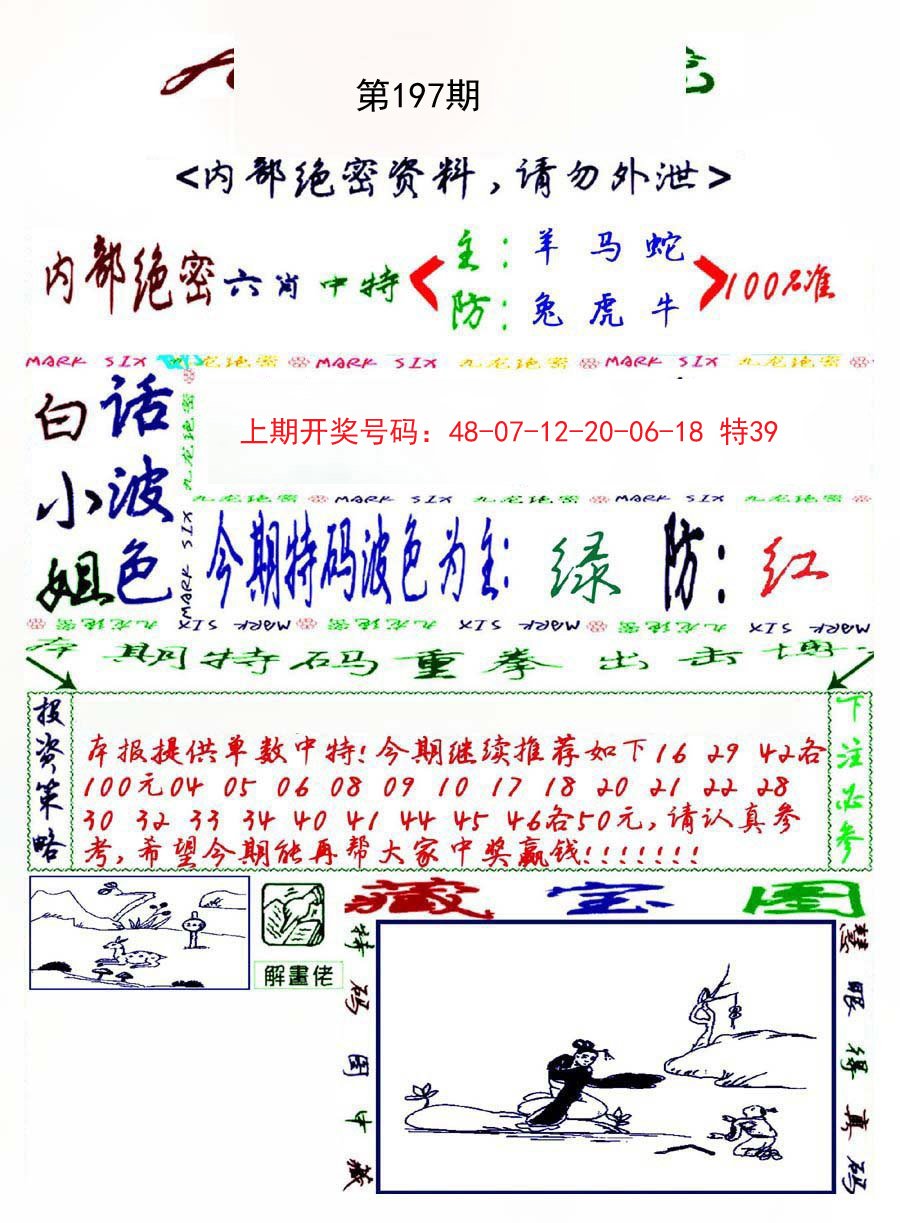 第197期
<内部绝密资料,请勿外泄>
内部绝密六肖中特
主:羊马蛇
防:兔虎牛
100%准
MARK SIX 九龙绝密 MARK SIX 九龙绝密 MARK SIX 九龙绝密
白话
小波
姐色
九龙绝密
MARK SIX
上期开奖号码: 48-07-12-20-06-18 特39
九龙绝密 MARK SIX 九龙绝密 MARK SIX 九龙绝密
今期特码波色为主:绿 防:红
九龙绝密 MARK SIX 九龙绝密 MARK SIX 九龙绝密 MARK SIX
本期特码重拳出击博
投资策略
本报提供单数中特!今期继续推荐如下16 29 42各
100元04 05 06 08 09 10 17 18 20 21 22 28
30 32 33 34 40 41 44 45 46各50元,请认真参
考,希望今期能再帮大家中奖赢钱!!!!!!!
下注必参
解畫佬
藏宝图
特码图中藏
慧眼得真码